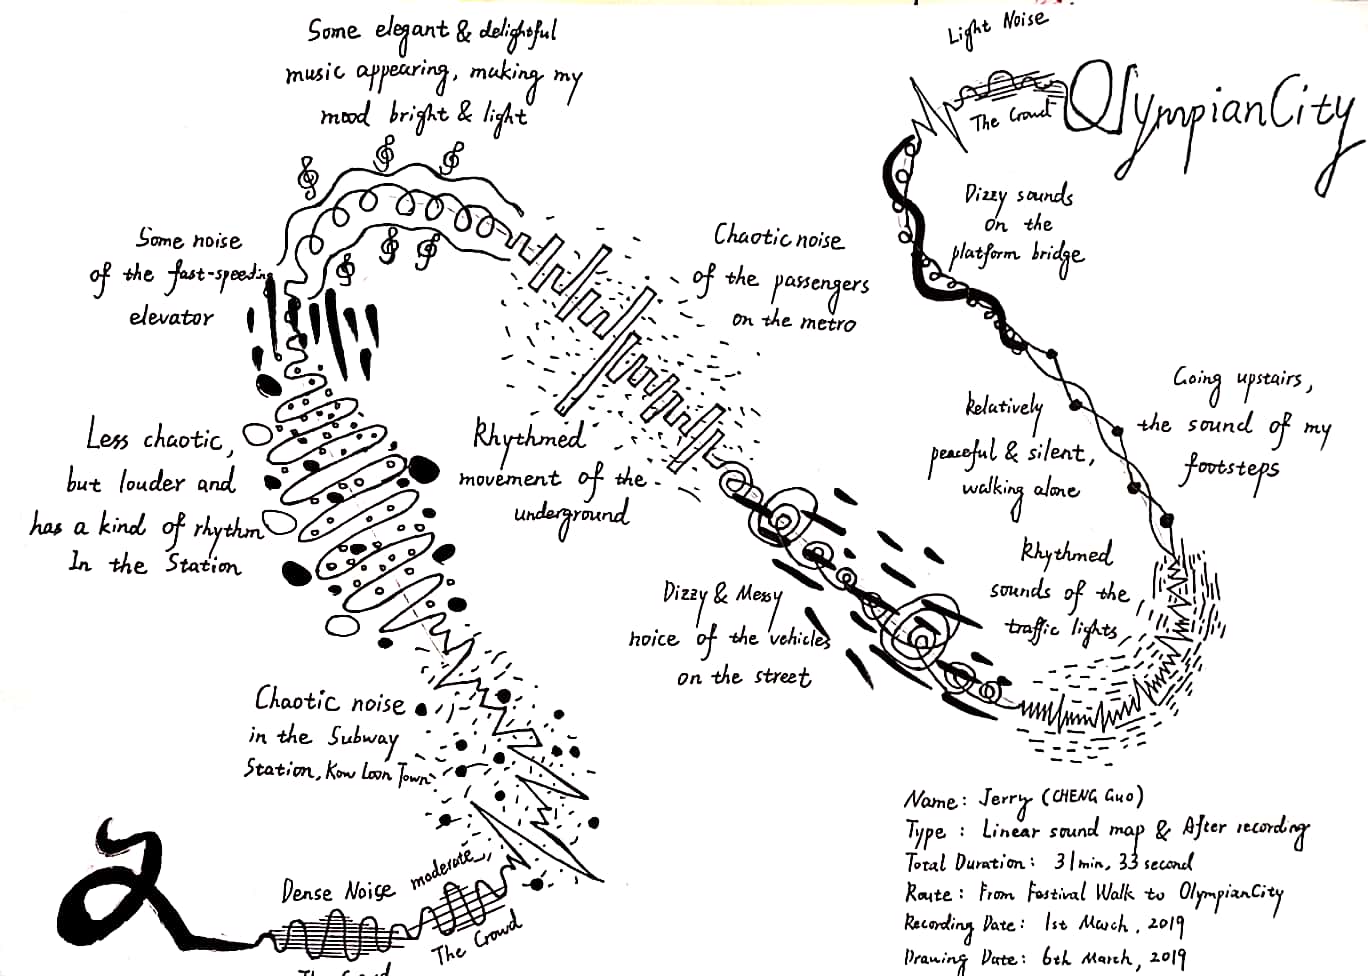 Some elegant & delightful
music appearing, making my
mood bright & light
Light Noise
The Crowd
OlympianCity
Dizzy sounds
on the
platform bridge
Some noise
of the fast-speeding
elevator
Chaotic noise
of the passengers
on the metro
Going upstairs,
the sound of my
footsteps
Relatively
peaceful & silent,
walking alone
Less chaotic,
but louder and
has a kind of rhythm
In the Station
Rhythmed
movement of the
underground
Rhythmed
sounds of the
traffic lights
Dizzy & Messy
noice of the vehicles
on the street
Chaotic noise
in the Subway
Station, Kow Loon Town
Dense Noise
moderate
The Crowd
The Crowd
Name: Jerry (CHENG Guo)
Type: Linear sound map & After recording
Total Duration: 31min, 33 second
Route: From Festival Walk to OlympianCity
Recording Date: 1st March, 2019
Drawing Date: 6th March, 2019